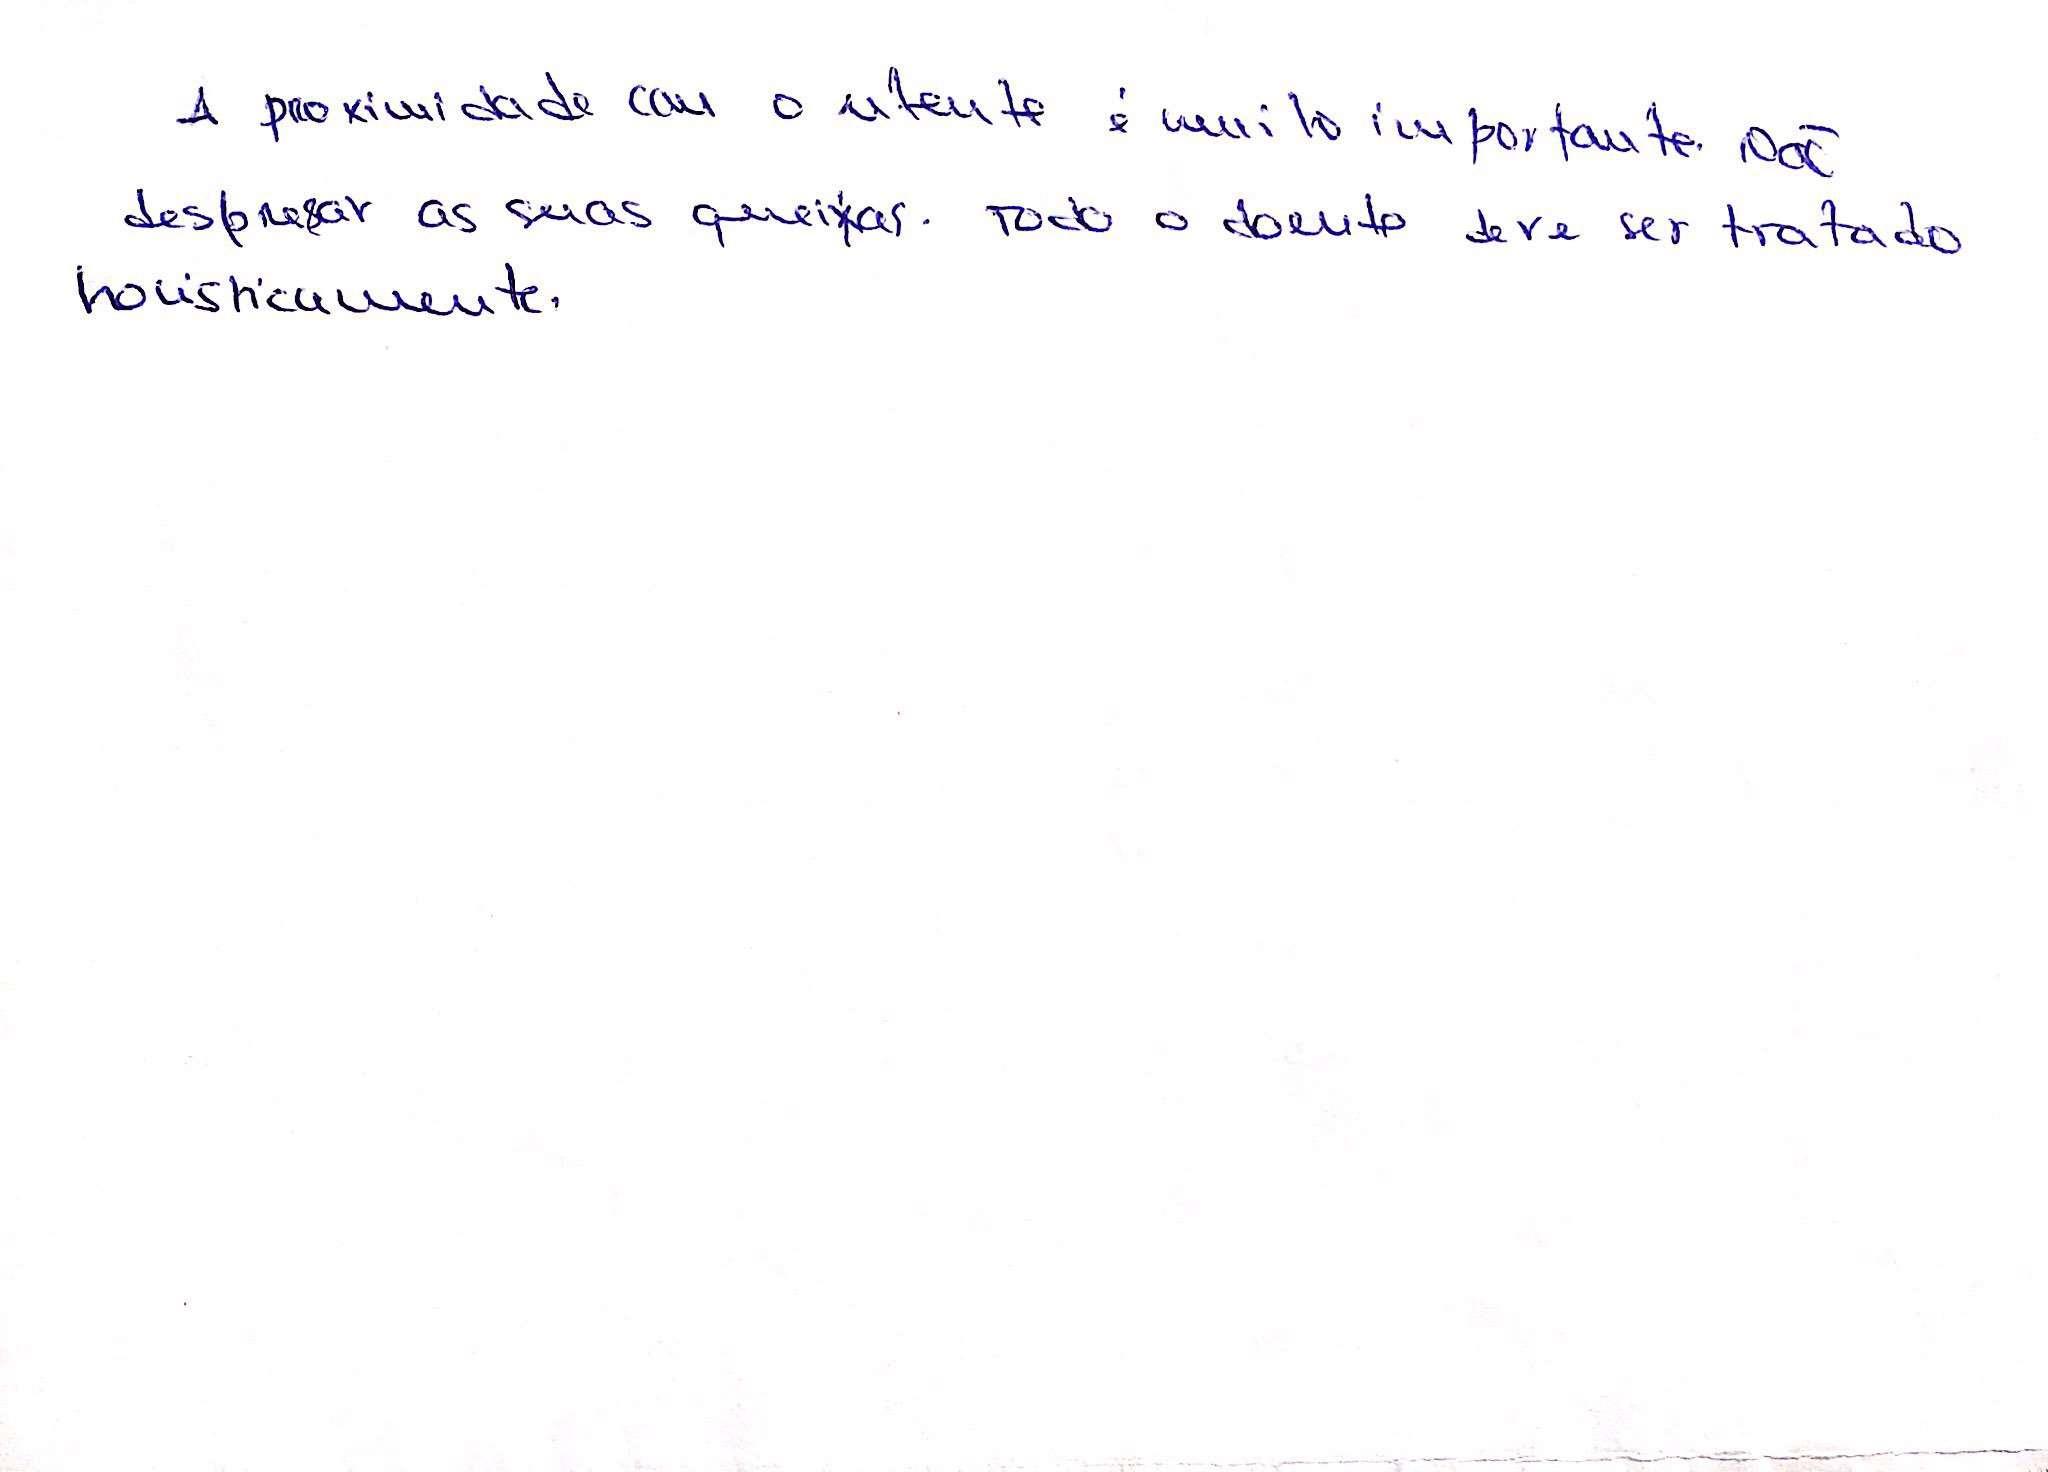 A proximidade com o utente é muito importante. Não
desprezar as suas queixas. Todo o doente deve ser tratado
holisticamente.